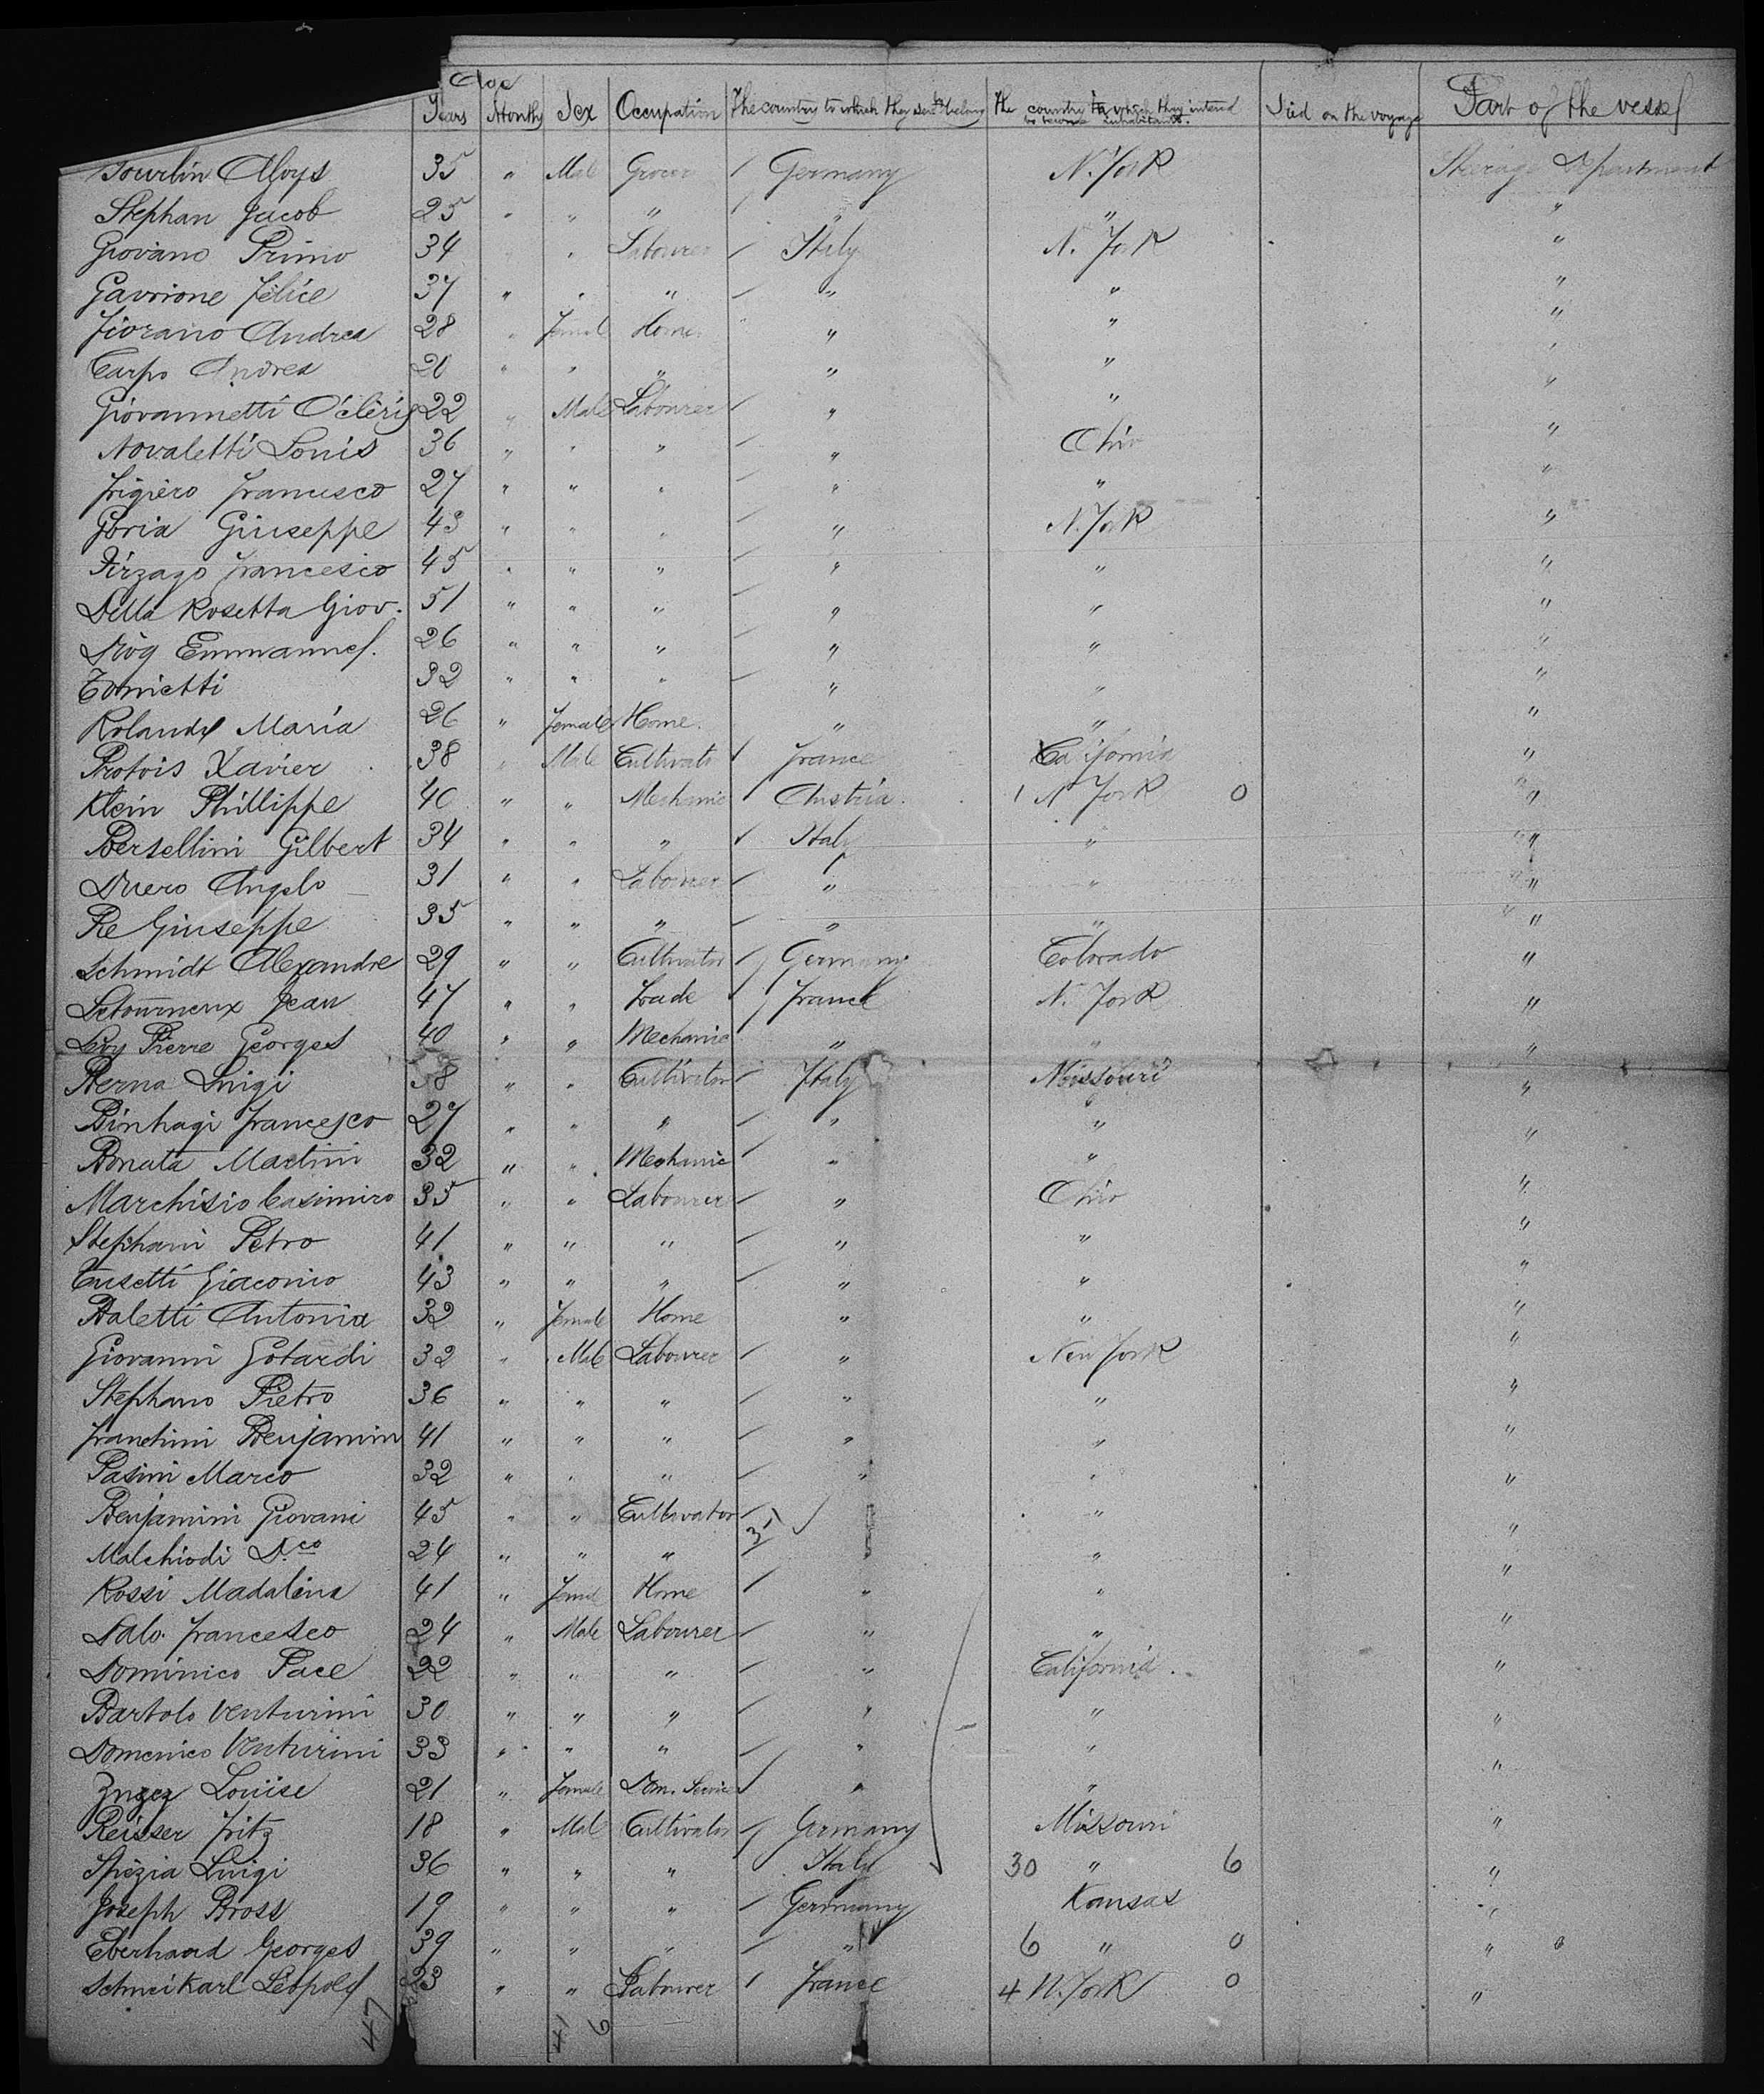 Age
Years Months Sex Occupation The country to which they sev.ly belong The country to which they intend to become inhabitants. Died on the voyage Part of the vessel
Aloys 35 " Male Grocer / Germany N. York Steerage Department
Stephan Jacob 25 " " " " " "
Giovano Primo 34 " " Labourer / Italy N. York "
Gavrione Felice 37 " " " / " " "
Fiorano Andrea 28 " Femal Home " " "
Carpo Andrea 20 " " " " " "
Giovannetti 22 " Male Labourer / " " "
Novaletti Louis 36 " " " / " Ohio "
Frigiero Francesco 27 " " " / " " "
Goria Giuseppe 43 " " " / " N. York "
Firzago Francesco 45 " " " / " " "
Della Rosetta Giov. 51 " " " / " " "
Emmanuel. 26 " " " / " " "
Tonietti 32 " " " / " " "
Roland Maria 26 " Female Home. " " "
Protois Xavier 38 " Male Cultivator / France California "
Klein Phillippe 40 " " Mechanic / Austria. 1 N York 0 "
Bersellini Gilbert 34 " " " / Italy " "
Duero Angelo 31 " " Labourer / " " "
Re Giuseppe 35 " " " / " " "
Schmidt Alexandre 29 " " Cultivator / Germany Colorado "
Letourneux Jean 47 " " Trade / France N. York "
Levy Pierre Georges 40 " " Mechanic / " " "
Berna Luigi 38 " " Cultivator / Italy Missouri "
Binhagi Francesco 27 " " " / " " "
Bonata Martini 32 " " Mechanic / " " "
Marchisio Casimiro 35 " " Labourer / " Ohio "
Stephani Petro 41 " " " / " " "
Cusetti Giacomo 43 " " " / " " "
Baletti Antonia 32 " Female Home " " "
Giovanni Gotardi 32 " Male Labourer / " New York "
Stephano Pietro 36 " " " / " " "
Franchini Benjamin 41 " " " / " " "
Pasini Marco 32 " " " / " " "
Benjamini Giovani 45 " " Cultivator / " "
Malchiodi D.co 24 " " " " " "
Rossi Madalena 41 " Femal Home / " " "
Dalo Francesco 24 " Male Labourer / " " "
Dominico Pace 22 " " " / " California. "
Bartolo Venturini 30 " " " / " " "
Domenico Venturini 33 " " " / " " "
Louise 21 " Female Dom. Service / " " "
Reisser Fritz 18 " Male Cultivator / Germany Missouri "
Spezia Luigi 36 " " " Italy 30 " 6 "
Joseph Bross 19 " " " / Germany Kansas "
Eberhard Georges 39 " " " / " 6 " 0 "
Schneikarl Léopold 23 " " Labourer / France 4 N. York 0 "
47 41 6